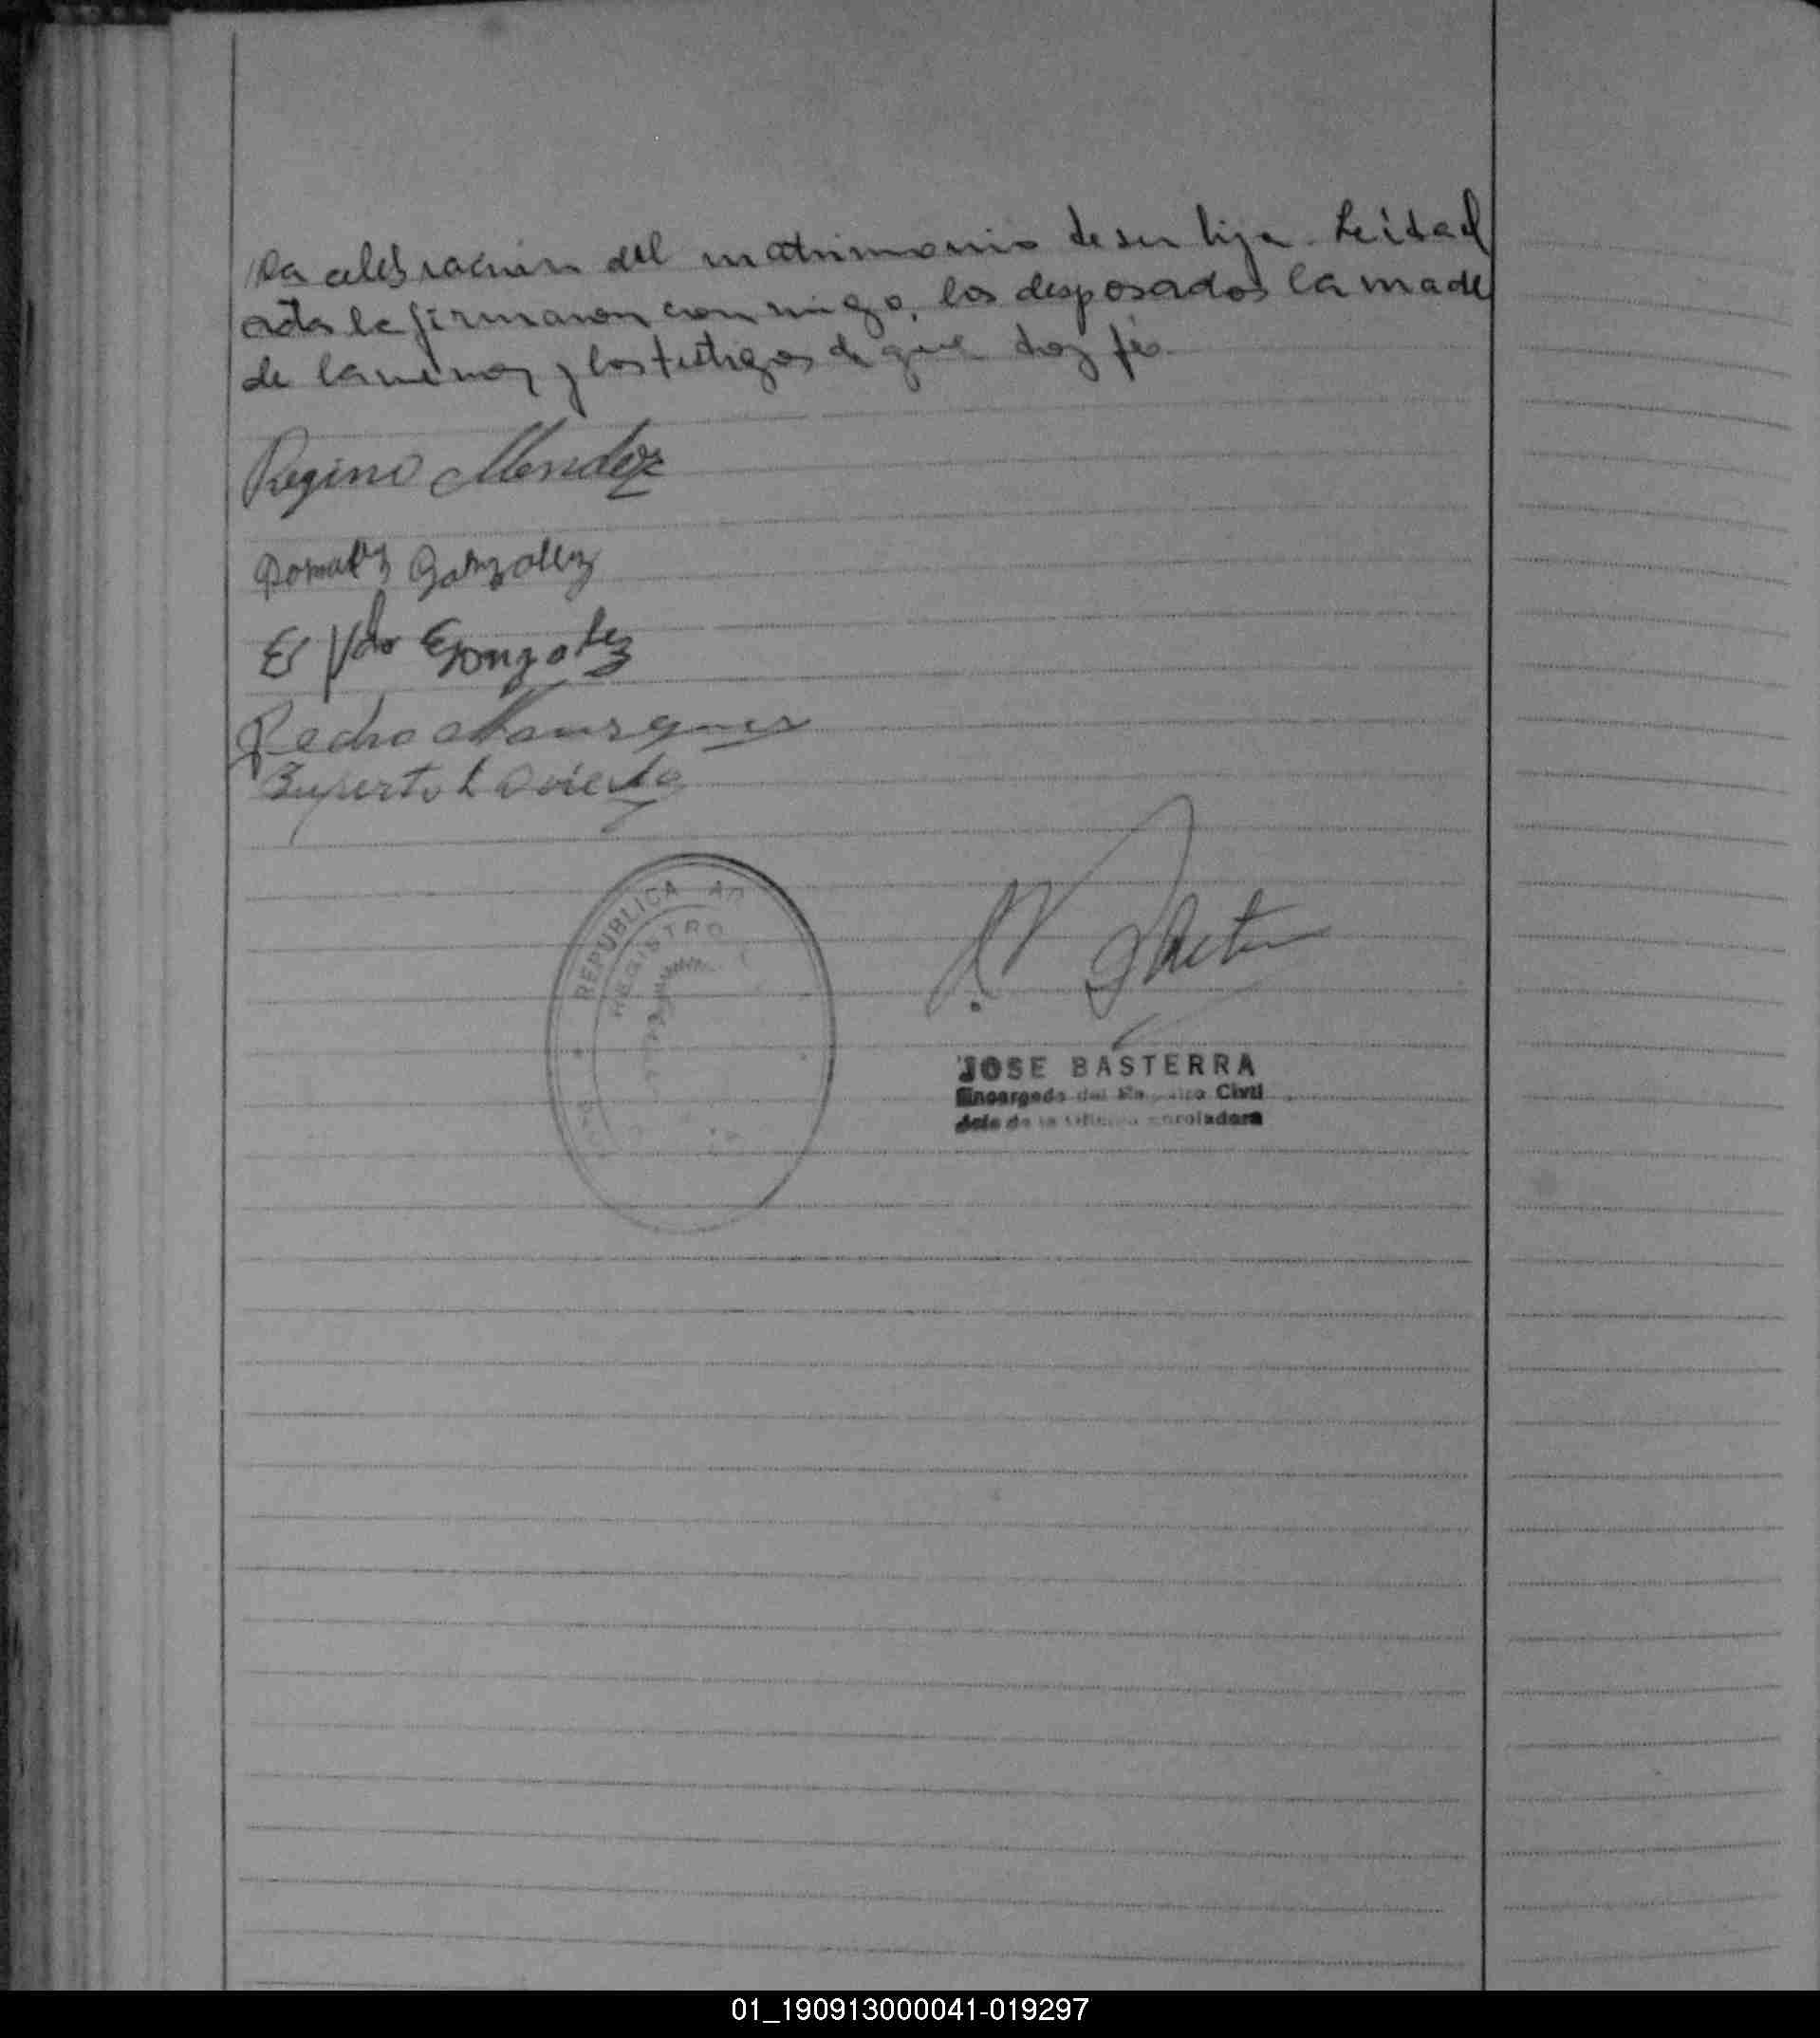 la celebración del matrimonio de su hija. Leida el
acta la firmaron conmigo, los desposados la madre
de la menor y los testigos de que doy fé.
Regino Mendoz
Gonzalez
Gonzalez
Pedro
Ruperto L Oviedo
REPUBLICA
REGISTRO
JOSE BASTERRA
Encargado del Registro Civil
Jefe de la Oficina Enroladora
01_190913000041-019297